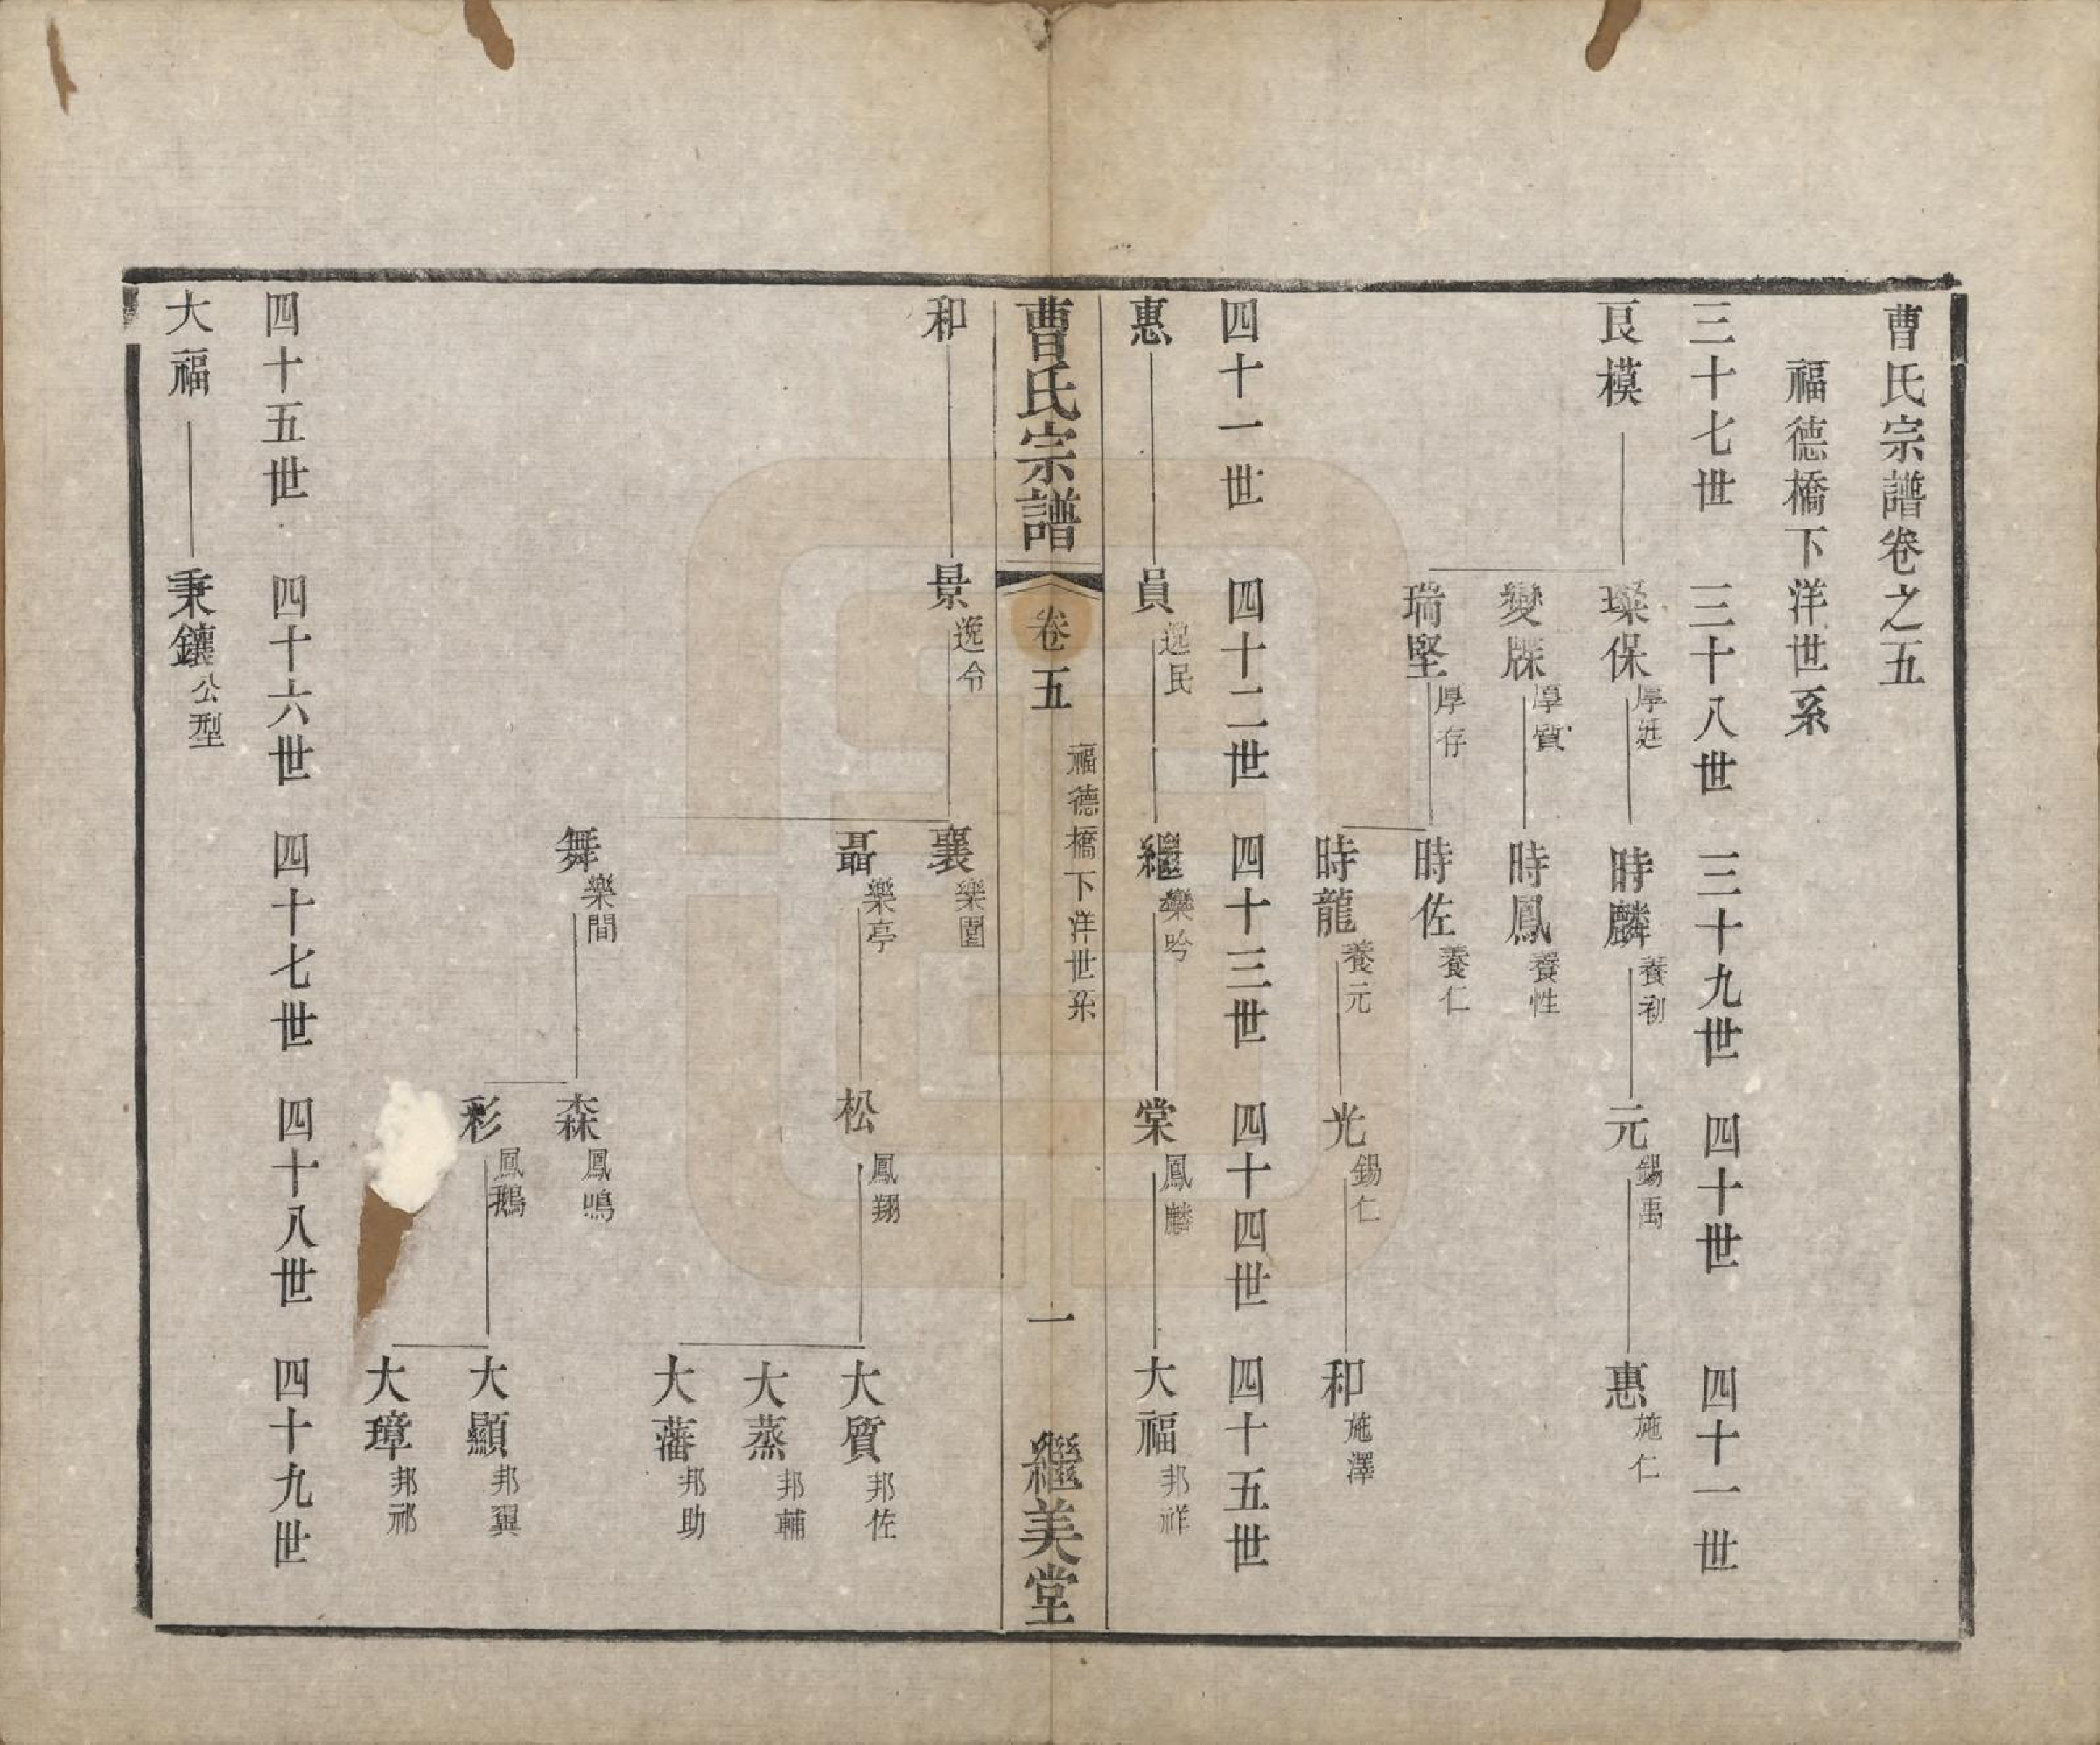 曹氏宗譜卷之五
福德橋下洋世系
三十七世 三十八世 三十九世 四十世 四十一世
良模 璨保 厚廷 時麟 養初 元 錫禹 惠 施仁
變牒 厚質 時鳳 養性
瑞堅 厚存 時佐 養仁
時龍 養元 光 錫仁 和 施澤
四十一世 四十二世 四十三世 四十四世 四十五世
惠 員 逸民 繼 樂吟 棠 鳳麟 大福 邦祥
曹氏宗譜 卷五 福德橋下洋世系 一 繼美堂
和 景 逸令 襄 樂園
聶 樂亭 松 鳳翔 大質 邦佐
大蒸 邦輔
大藩 邦助
舞 樂間 森 鳳鳴
彩 鳳鵝 大顯 邦翼
大璋 邦祁
四十五世 四十六世 四十七世 四十八世 四十九世
大福 秉鑲 公型